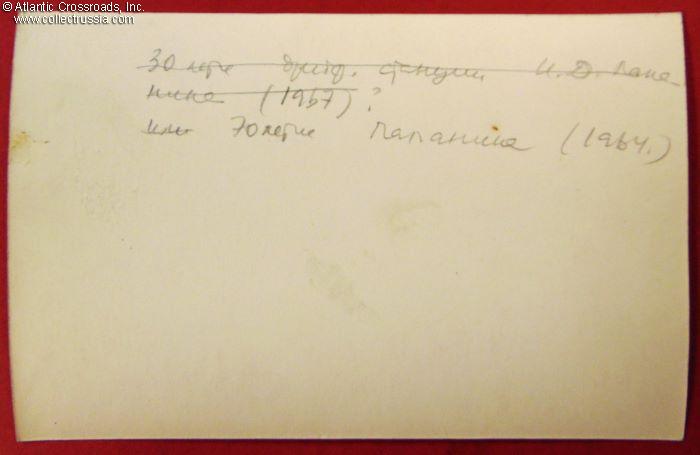 © Atlantic Crossroads, Inc.
www.collectrussia.com
30 летие дрейф. станции И. Д. Папа
нина (1967)?
или 70 летие Папанина (1964.)